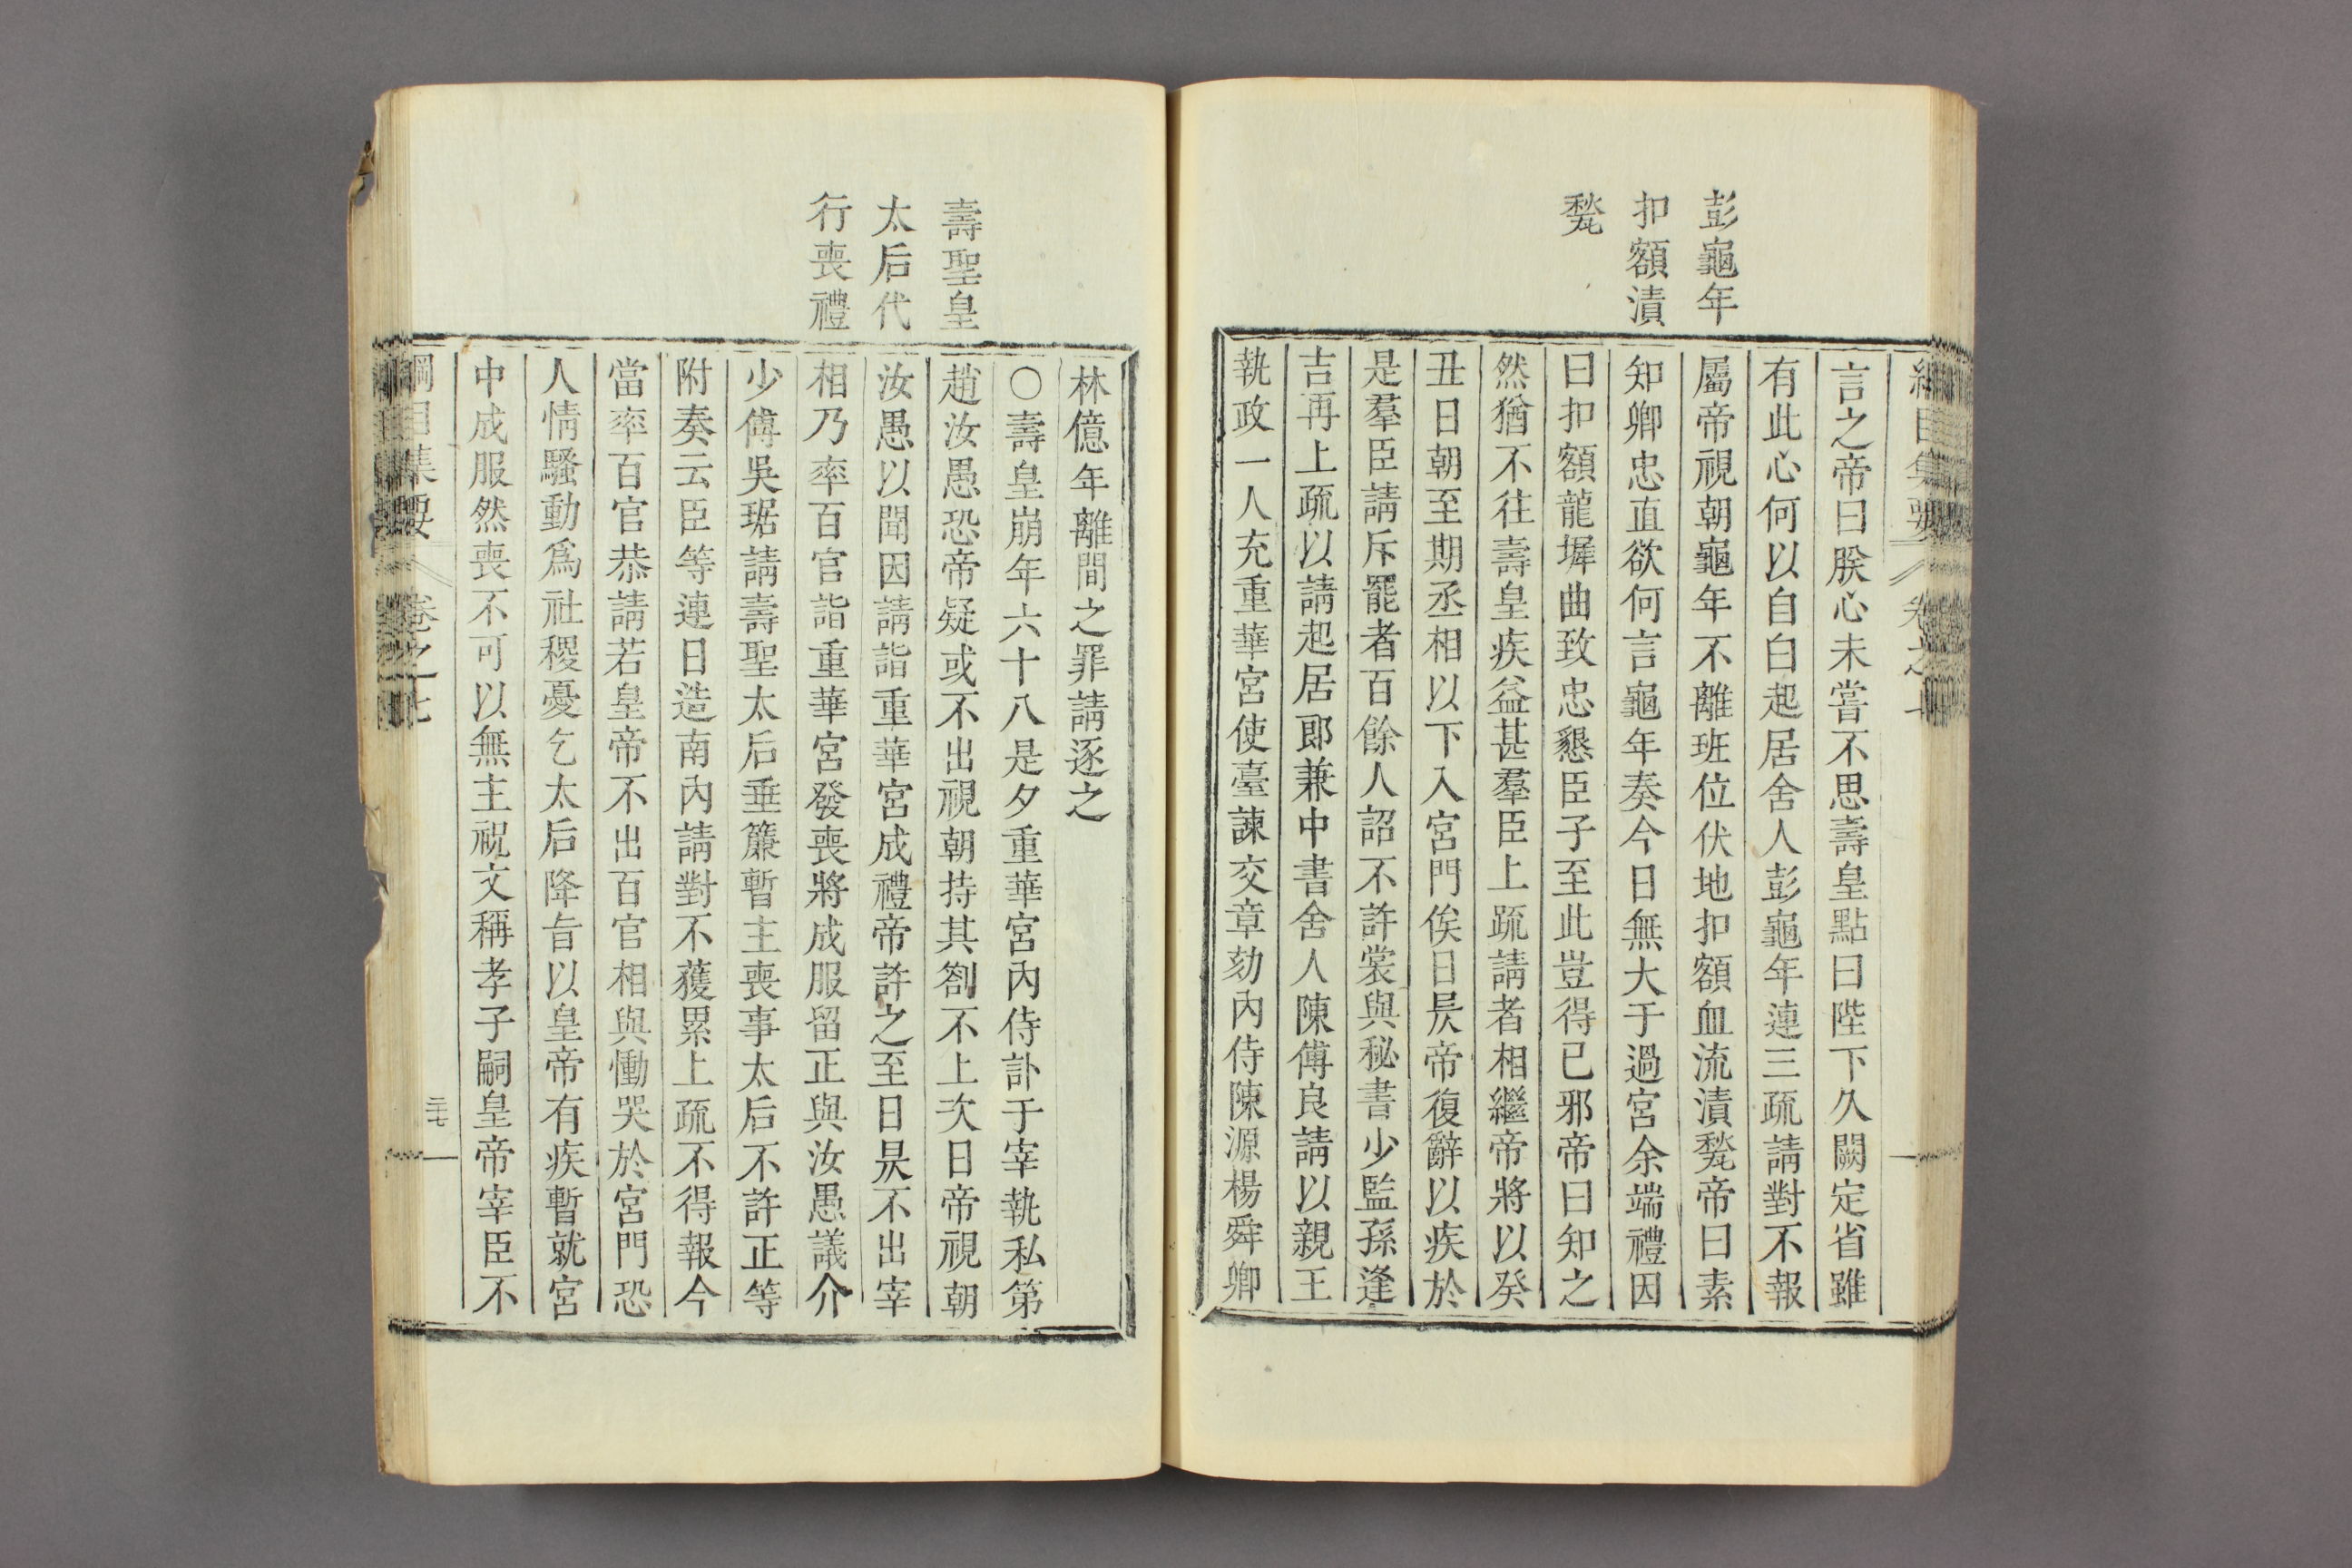 彭龜年
扣額漬
甃
言之帝曰朕心未嘗不思壽皇點曰陛下久闕定省雖
有此心何以自白起居舍人彭龜年連三疏請對不報
屬帝視朝龜年不離班位伏地扣額血流漬甃帝曰素
知卿忠直欲何言龜年奏今日無大于過宮余端禮因
曰扣額龍墀曲致忠懇臣子至此豈得已邪帝曰知之
然猶不往壽皇疾益甚羣臣上疏請者相繼帝將以癸
丑日朝至期丞相以下入宮門俟日昃帝復辭以疾於
是羣臣請斥罷者百餘人詔不許裳與秘書少監孫逢
吉再上疏以請起居郎兼中書舍人陳傅良請以親王
執政一人充重華宮使臺諫交章劾內侍陳源楊舜卿
壽聖皇
太后代
行喪禮
林億年離間之罪請逐之
○壽皇崩年六十八是夕重華宮內侍訃于宰執私第
趙汝愚恐帝疑或不出視朝持其劄不上次日帝視朝
汝愚以聞因請詣重華宮成禮帝許之至日昃不出宰
相乃率百官詣重華宮發喪將成服留正與汝愚議介
少傅吳琚請壽聖太后垂簾暫主喪事太后不許正等
附奏云臣等連日造南內請對不獲累上疏不得報今
當率百官恭請若皇帝不出百官相與慟哭於宮門恐
人情騷動爲社稷憂乞太后降旨以皇帝有疾暫就宮
中成服然喪不可以無主祝文稱孝子嗣皇帝宰臣不
綱目集要 卷之七 三十七